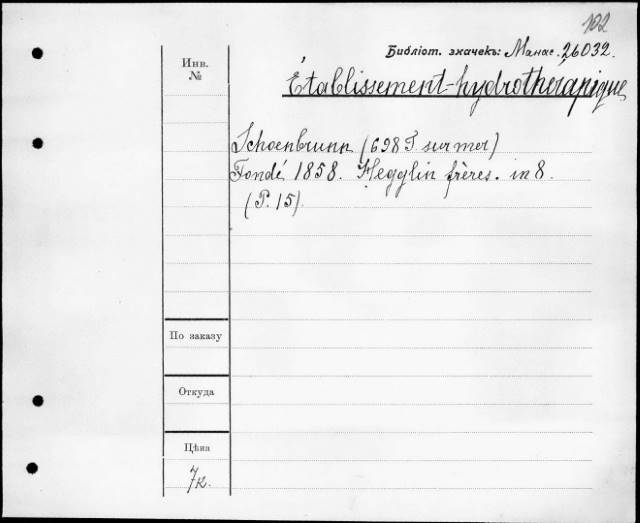 102
Библіот. значекъ: Манас. 26032.
Инв.
№
Établissement-hydrothérapique
Schoenbrunn (698 T. sur mer)
Fondé 1858. Hegglin frères. in 8.
(P. 15).
По заказу
Откуда
Цѣна
7к.